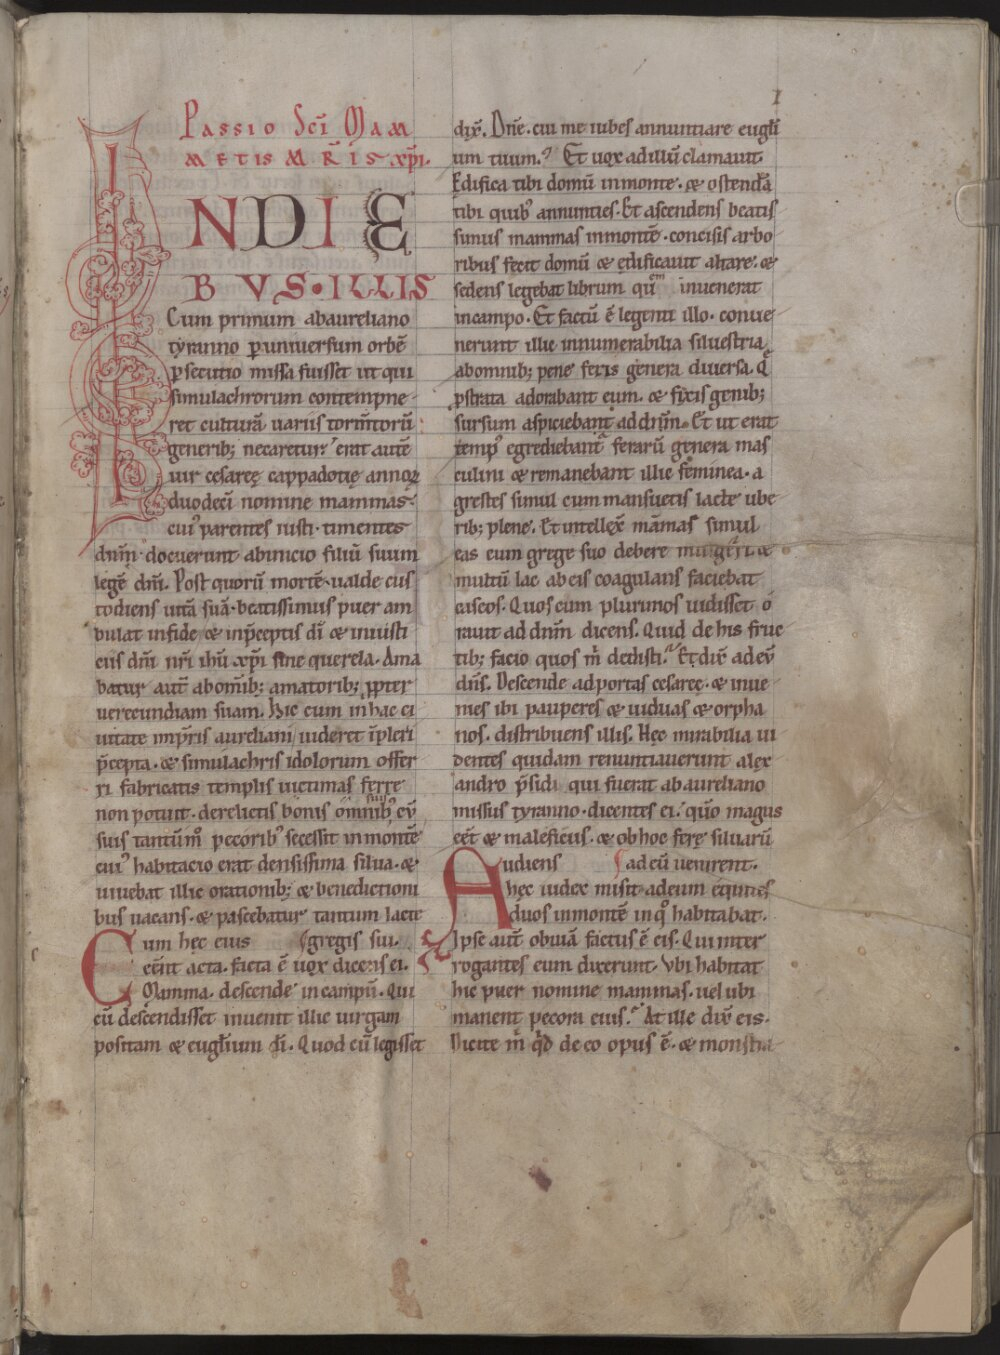 I
Passio Sc̄i Mam
metis m̄r̄is xp̄i.
INDIE
BVS·ILLIS
Cum primum abaureliano
tyranno ꝑuniuersum orbē
ꝑsecutio missa fuisset ut qui
simulachrorum contempne
ret culturā uariis tormētorū
generib; necaretur· erat autē
uir cesareę cappadotię annoꝝ
duodecī nomine mammas·
cui᾽ parentes iusti· timentes
dn̄m· docuerunt abinicio filiū suum
legē dn̄i. Post quorū mortē· ualde cus
todiens uitā suā· beatissimus puer am
bulat infide & inp̄ceptis dī & iniusti
ciis dn̄i nr̄i ihū xp̄i sine querela. Ama
batur aut̄ abom̄ib; amatorib; ꝓpter
uerecundiam suam. Hic cum inhac ci
uitate imp̄ris aureliani uideret īpleri
p̄cepta· & simulachris idolorum offer
ri fabricatis templis uictimas ferre
non potuit· derelictis bonis omnib᾽ suis cū
suis tantūm̊ pecorib᾽ secessit inmontē
cui᾽ habitacio erat densissima silua· &
uiuebat illic orationib; & benedictioni
bus uacans· & pascebatur tantum lacte
Cum hęc eius gregis sui.
eēnt acta· facta ē uox dicens ei.
Mamma· descende incampū. Qui
cū descendisset inuenit illic uirgam
positam & eugłium dī. Quod cū legisset
dix̄. Dn̄e· cui me iubes annuntiare eugłi
um tuum. Et uox adillū clamauit.
Edifica tibi domū inmonte· & ostendā
tibi quib᾽ annunties. Et ascendens beatis
simus mammas inmontē· concisis arbo
ribus fecit domū & edificauit altare· &
sedens legebat librum quem inuenerat
incampo. Et factū ē legenti illo· conue
nerunt illic innumerabilia siluestria
abomnib; pene feris genera diuersa. Q̨
ꝓstrata adorabant eum· & fixis genib;
sursum aspiciebant addn̄m. Et ut erat
temp᾽ egrediebant᾽ ferarū genera mas
culini & remanebant illic feminea· a
grestes simul cum mansuetis lacte ube
rib; plene. Et intellex̄ māmas simul
eas cum grege suo debere mulgeri &
multū lac abeis coagulans faciebat
caseos. Quos cum plurimos uidisset o
rauit ad dn̄m dicens. Quid de his fruc
tib; facio quos m̄ dedisti. Et dix̄ adeū
dn̄s. Descende adportas cesareę· & inue
nies ibi pauperes & uiduas & orpha
nos· distribuens illis. Hęc mirabilia ui
dentes quidam renuntiauerunt alex
andro p̄sidi qui fuerat abaureliano
missus tyranno· dicentes ei· quo magus
eēt & maleficus· & obhoc ferę siluarū
Audiens adeū uenirent.
hęc iudex misit adeum equites
duos inmontē inqͦ habitabat.
Ipse aut̄ obuiā factus ē eis. Qui inter
rogantes eum dixerunt. Vbi habitat
hic puer nomine mammas· uel ubi
manent pecora eius. At ille dix̄ eis.
Dicite m̄ qd̄ de eo opus ē· & monstra